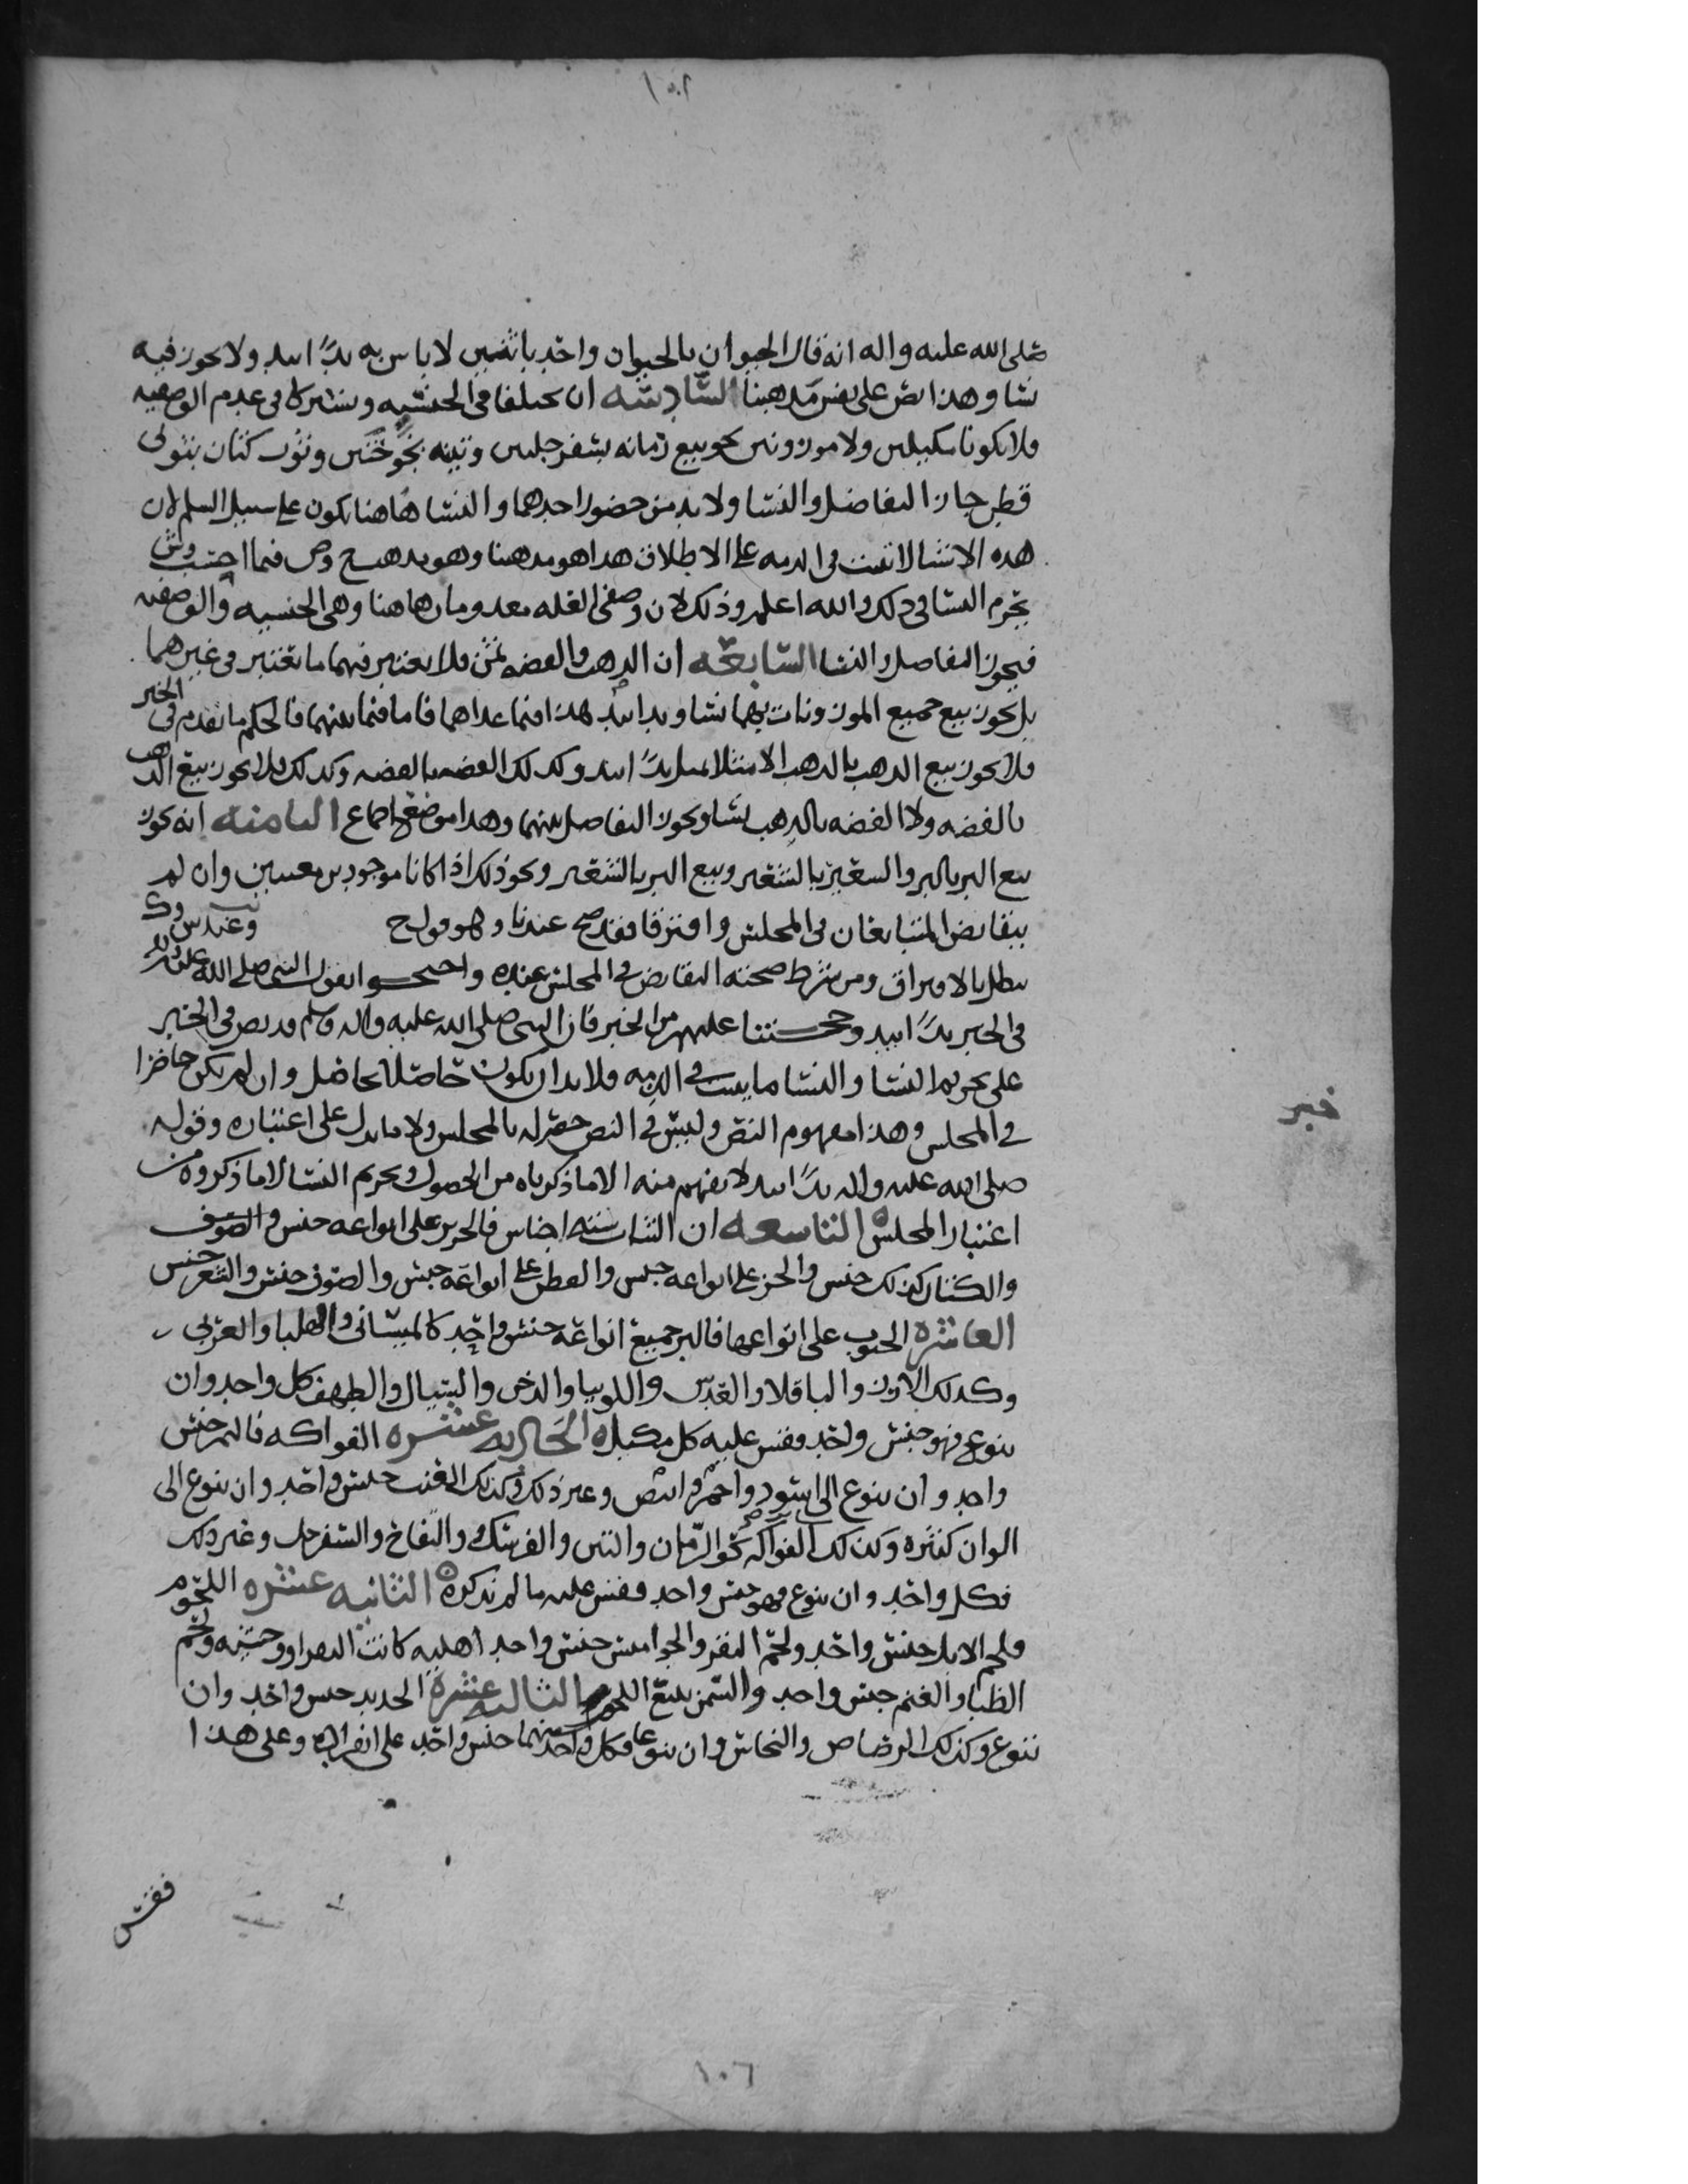 ١٠٦
صلى الله عليه واله انه قال الحيوان بالحيوان واحد باثنين لا باس به يدًا بيد ولا يجوز فيه
نسا وهذا نص على نفس مذهبنا السادسه ان يختلفا في الجنسيه ويشتركا في عدم الوصفيه
فلا يكونا مكيلين ولا موزونين نحو بيع رمانه بسفرجلتين وتينه بخوختين وثوب كتان بثوبى
قطن جاز التفاضل والنسا ولا بد من حضور احدهما والنسا هاهنا يكون على سبيل السلم لان
هذه الاشيا لا تثبت في الذمه على الاطلاق هذا هو مذهبنا وهو مذهب ح وص فيما احتسب وش
يحرم النسا في ذلك والله اعلم وذلك لان وصفى العله معدومان هاهنا وهي الجنسيه والوصفيه
فيجوز التفاضل والنسا السابعه ان الذهب والفضه ثمن فلا يعتبر فيهما ما يعتبر في غيرهما
بل يجوز بيع جميع الموزونات بهما نسا ويدا بيد هذا فيما عداهما فاما فيما بينهما فالحكم ما تقدم في الخبر
فلا يجوز بيع الذهب بالذهب الا مثلا بمثل يدًا بيد وكذلك الفضه بالفضه وكذلك فلا يجوز بيع الذهب
بالفضه ولا الفضه بالذهب نسا ويجوز التفاضل بينهما وهذا موضع اجماع الثامنه انه يجوز
بيع البر بالبر والشعير بالشعير وبيع البر بالشعير ونحو ذلك اذا كانا موجودين معينين وان لم
يتقابض المتبايعان في المجلس وافترقا فقد صح عندنا وهو قول ح وعند ش وك
يبطل بالافتراق ومن شرط صحته التقابض في المجلس عنده واحتجوا بقول النبى صلى الله عليه واله
في الخبر يدًا بيد وحجتنا عليهم من الخبر فان النبى صلى الله عليه واله وسلم قد نص في الخبر
على تحريم النسا والنسا ما يثبت في الذمه فلا بد ان يكون حاصلا بحاصل وان لم يكن حاضرا
في المجلس وهذا مفهوم النص وليس في النص حصر له بالمجلس ولا ما يدل على اعتباره وقوله
خبر
صلى الله عليه واله يدًا بيد لا يفهم منه الا ما ذكرناه من الحصول وتحريم النسا لا ما ذكروه من
اعتبار المجلس التاسعه ان الثياب سته اجناس فالحرير على انواعه جنس والصوف
والكتان كذلك جنس والخز على انواعه جنس والقطن على انواعه جنس والصوف جنس والشعر جنس
العاشره الحبوب على انواعها فالبر جميع انواعه جنس واحد كالميسانى والهلبا والعربي
وكذلك الارز والباقلا والعدس واللوبيا والدخن والطهف كل واحد وان
تنوع فهو جنس واحد وقس عليه كل مكيل الحاديه عشره الفواكه فالتمر جنس
واحد وان تنوع الى اسود واحمر وابيض وغير ذلك وكذلك العنب جنس واحد وان تنوع الى
الوان كثيره وكذلك الفواكه نحو الرمان والتين والفرسك والتفاح والسفرجل وغير ذلك
فكل واحد وان تنوع فهو جنس واحد وقس عليه ما لم نذكره الثانيه عشره اللحوم
فلحم الابل جنس واحد ولحم البقر والجواميس جنس واحد اهليه كانت البقر او وحشيه ولحم
الظبا والغنم جنس واحد والسمن يتبع اللحوم الثالثه عشره الحديد جنس واحد وان
تنوع وكذلك الرصاص والنحاس وان تنوعا فكل واحد منهما جنس واحد على انفراده وعلى هذا
فقس
١٠٦